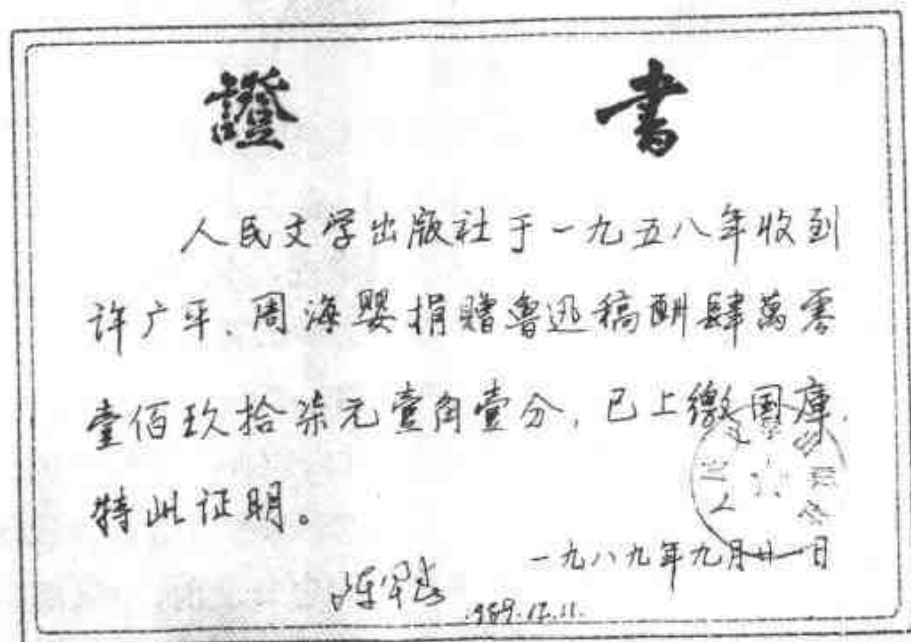 證 書
人民文学出版社于一九五八年收到
许广平、周海婴捐赠鲁迅稿酬肆萬零
壹佰玖拾柒元壹角壹分，已上缴国库，
特此证明。
一九八九年九月廿一日
1989.12.11.